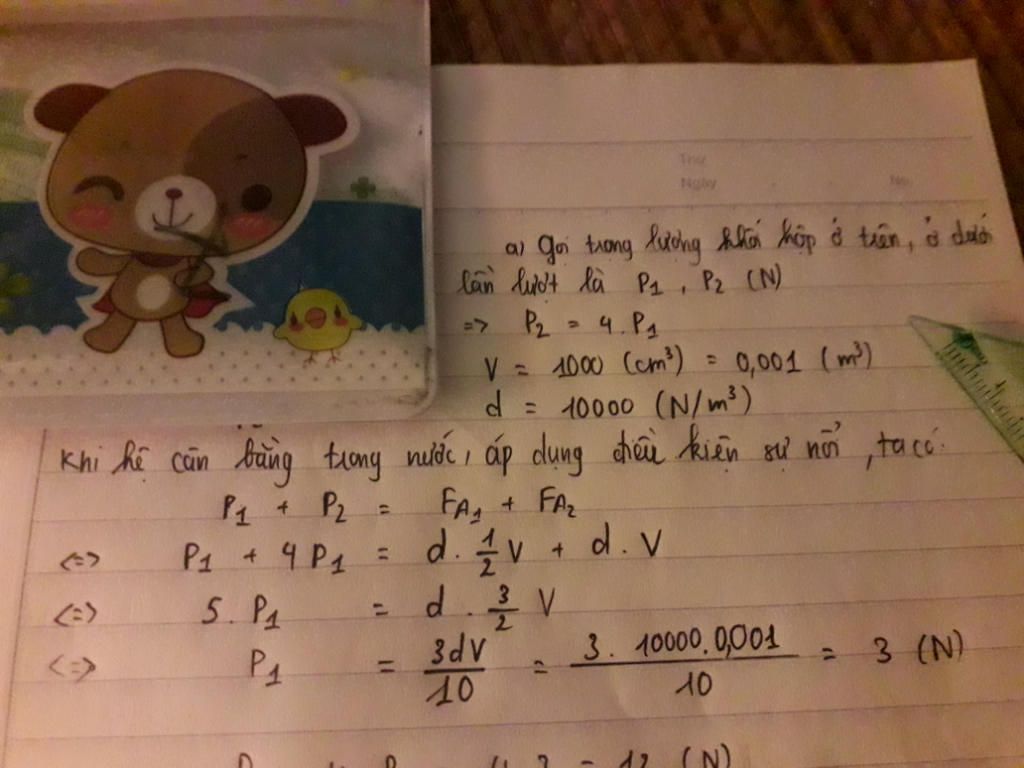 Thứ
Ngày No.
a) Gọi trọng lượng khối hộp ở trên, ở dưới
lần lượt là P₁, P₂ (N)
=> P₂ = 4.P₁
V = 1000 (cm³) = 0,001 (m³)
d = 10000 (N/m³)
Khi hệ cân bằng trong nước, áp dụng điều kiện sự nổi, ta có:
P₁ + P₂ = FA₁ + FA₂
<=> P₁ + 4P₁ = d. 1/2 V + d. V
<=> 5. P₁ = d. 3/2 V
<=> P₁ = 3dV/10 = 3. 10000. 0,001/10 = 3 (N)
= 12 (N)